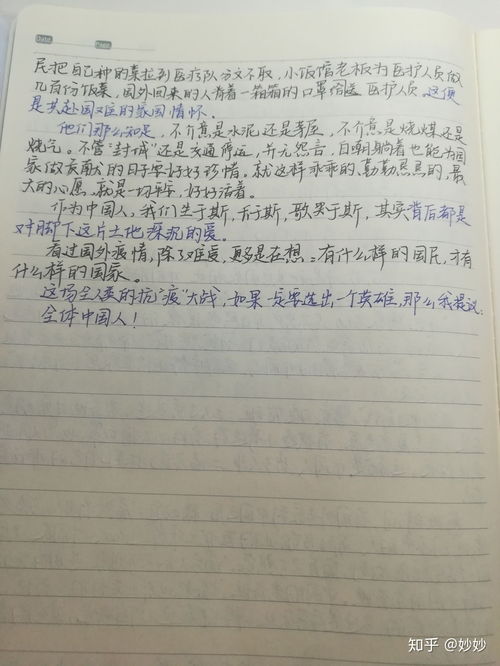 Date Page
民把自己种的菜拉到医疗队分文不取,小饭馆老板为医护人员做
几百份饭菜,国外回来的人背着一箱箱的口罩 医护人员,这便
是共赴国难的家国情怀。
他们那么知足,不介意是水泥还是茅屋,不介意是烧煤还是
烧气。不管"封城"还是交通停运,并无怨言,自嘲躺着也能为国
家做贡献的日子要好好珍惜。就这样乖乖的,勤勤恳恳的,最
大的心愿,就是一切平安,好好活着。
作为中国人,我们生于斯,长于斯,歌哭于斯,其实背后都是
对脚下这片土地深沉的爱。
看过国外疫情,除了难受,更多是在想:有什么样的国民,才有
什么样的国家。
这场全人类的抗"疫"大战,如果一定要选出一个英雄,那么我提议:
全体中国人!
知乎 @妙妙